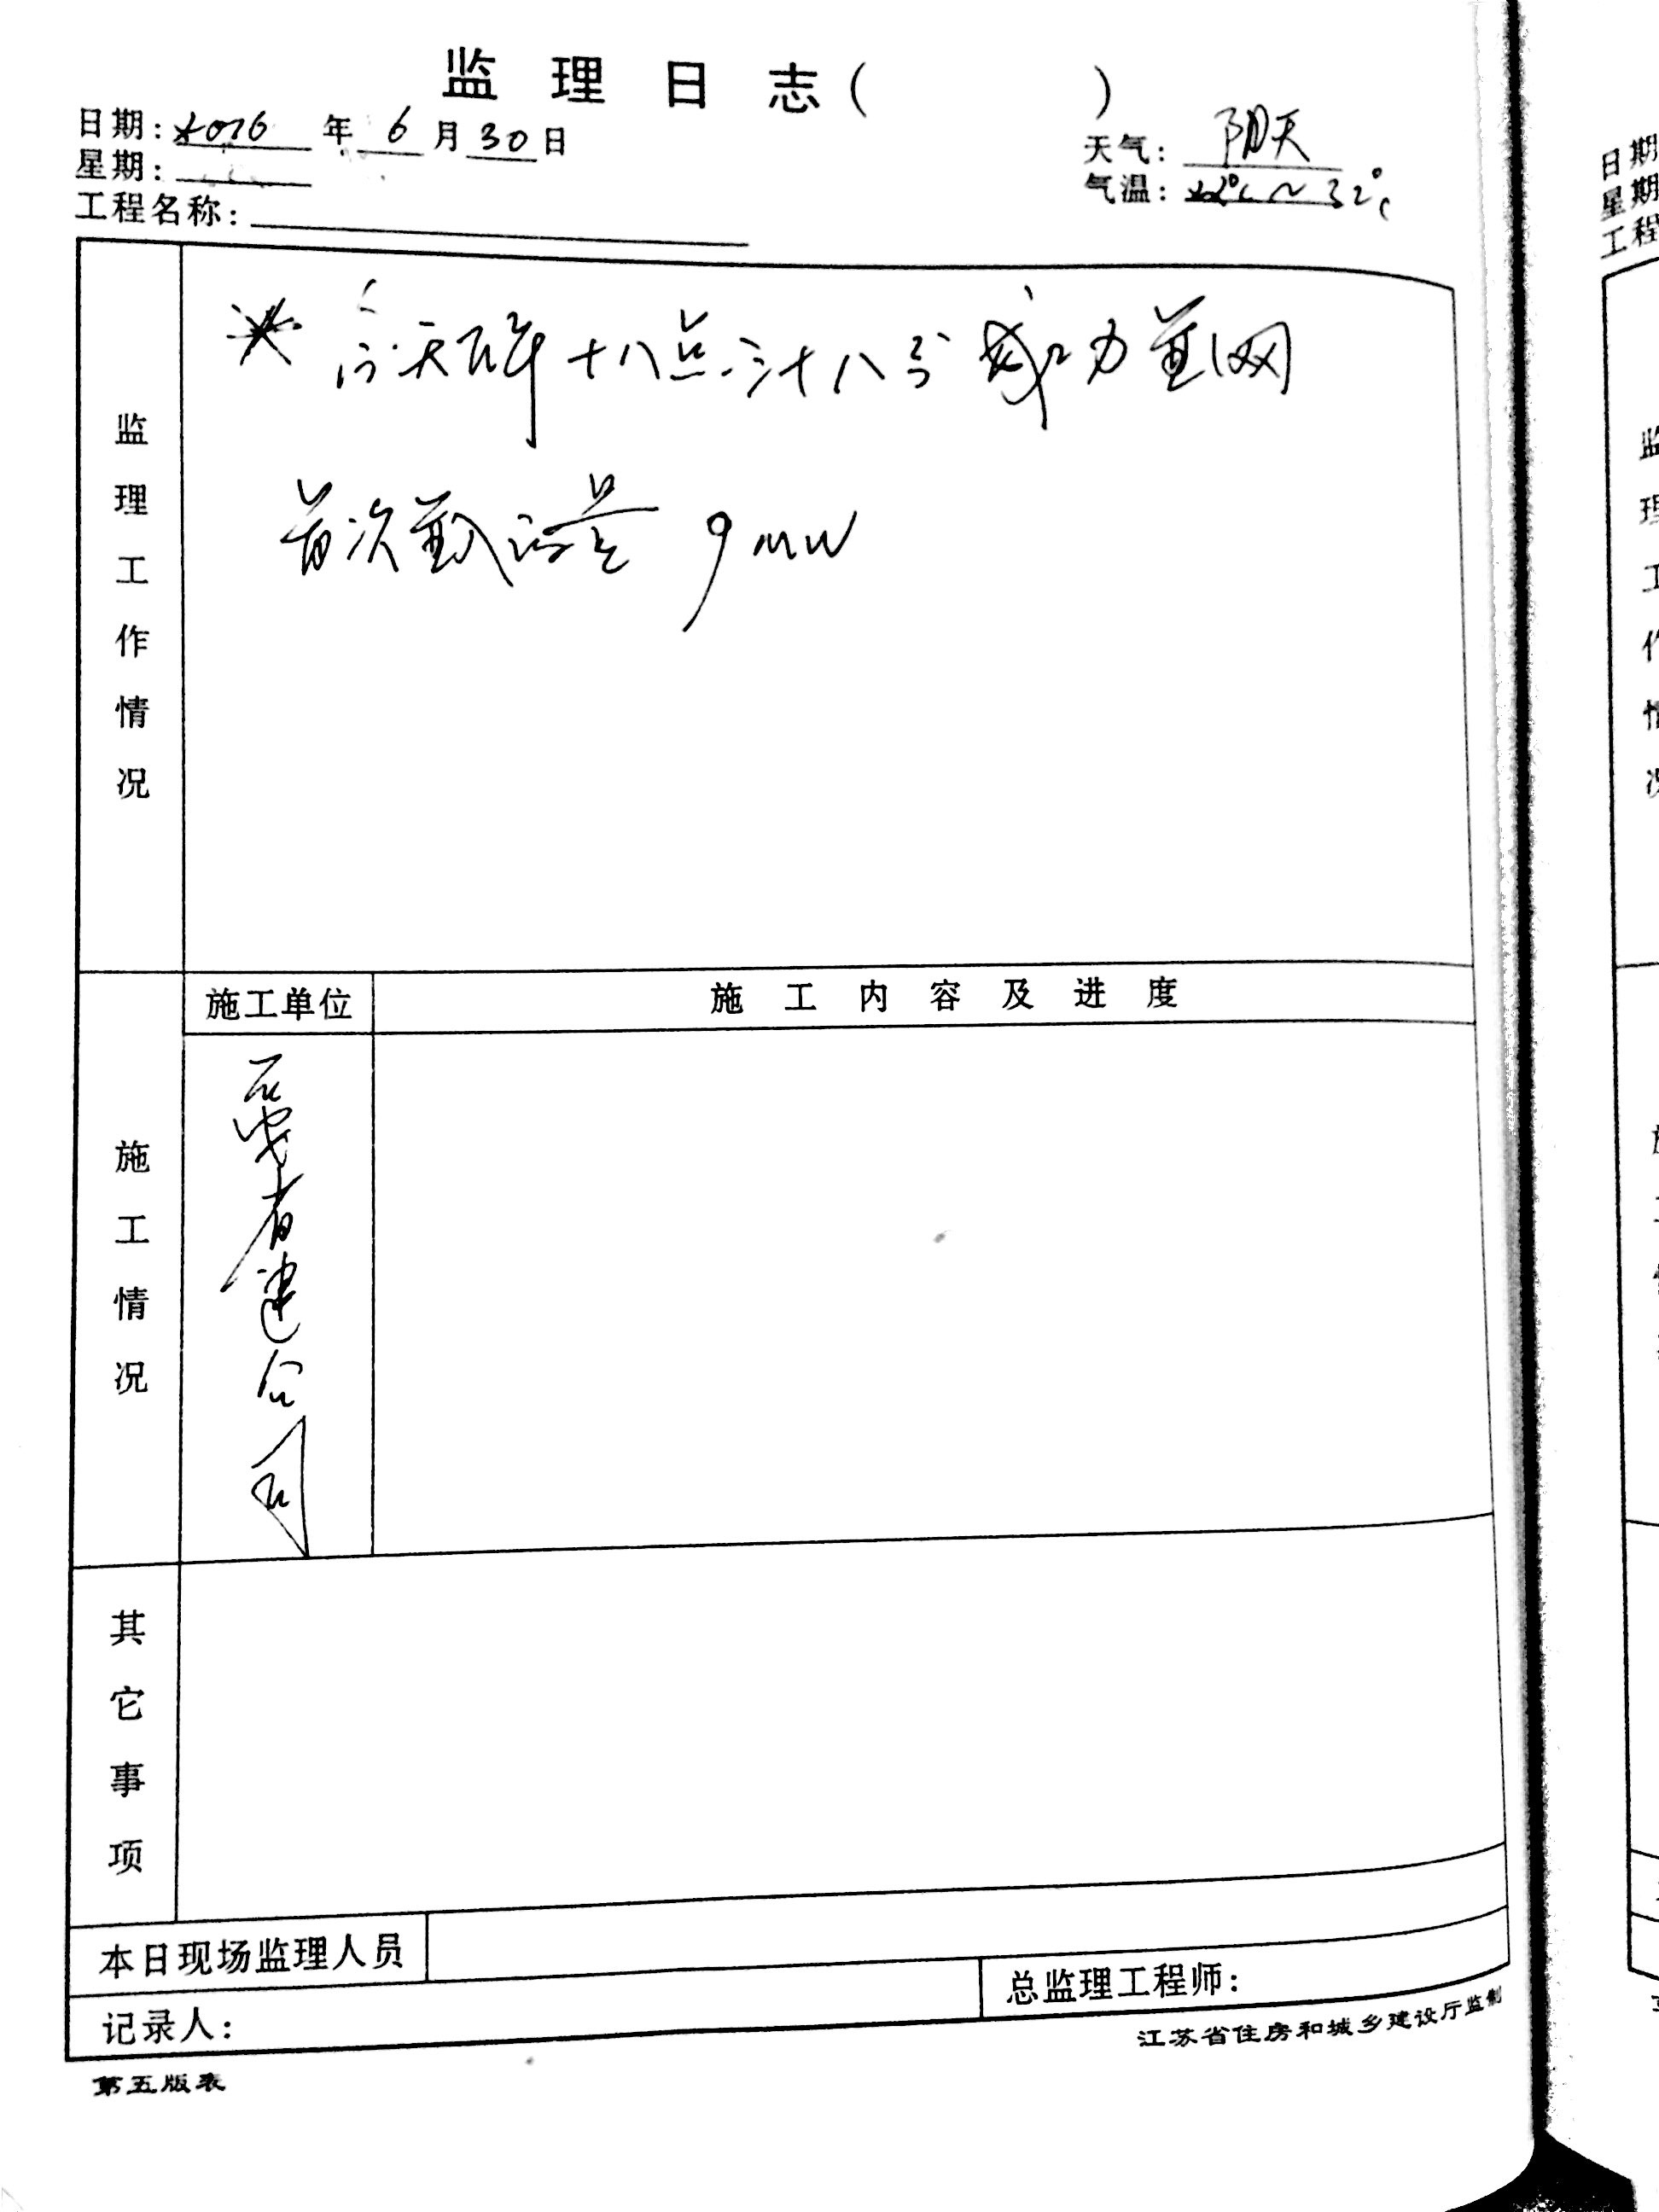 监理日志( )
日期: 2016 年 6 月 30 日
天气: 阴天
星期:
气温: 22℃~32℃
工程名称:
监理工作情况
今天下午十八点三十八分成功并网
首次并入容量 9MW
施工单位
施工内容及进度
施工情况
安省建公司
其它事项
本日现场监理人员
记录人:
总监理工程师:
江苏省住房和城乡建设厅监制
第五版表
日期
星期
工程